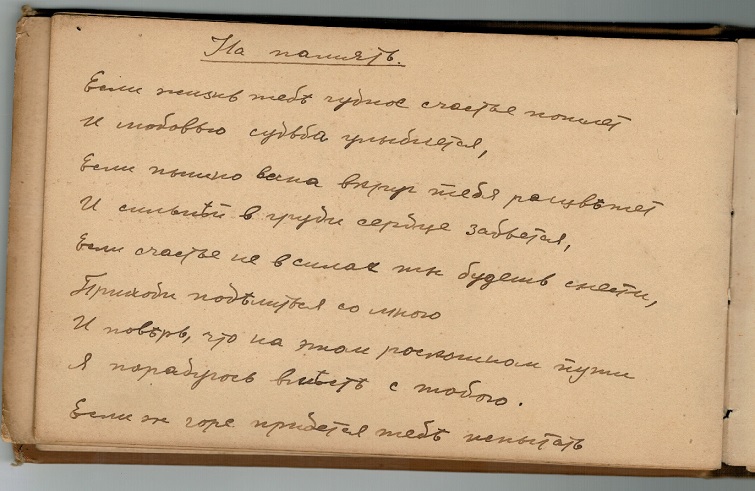 На память.
Если жизнь тебѣ чудное счастье пошлет
И любовью судьба улыбнется,
Если пышно весна вкруг тебя расцвѣтет
И сильнѣй в груди сердце забьется,
Если счастье не в силах ты будешь снести,
Приходи подѣлиться со мною
И повѣрь, что на этом роскошном пути
Я порадуюсь вмѣстѣ с тобою.
Если ж горе придется тебѣ испытать